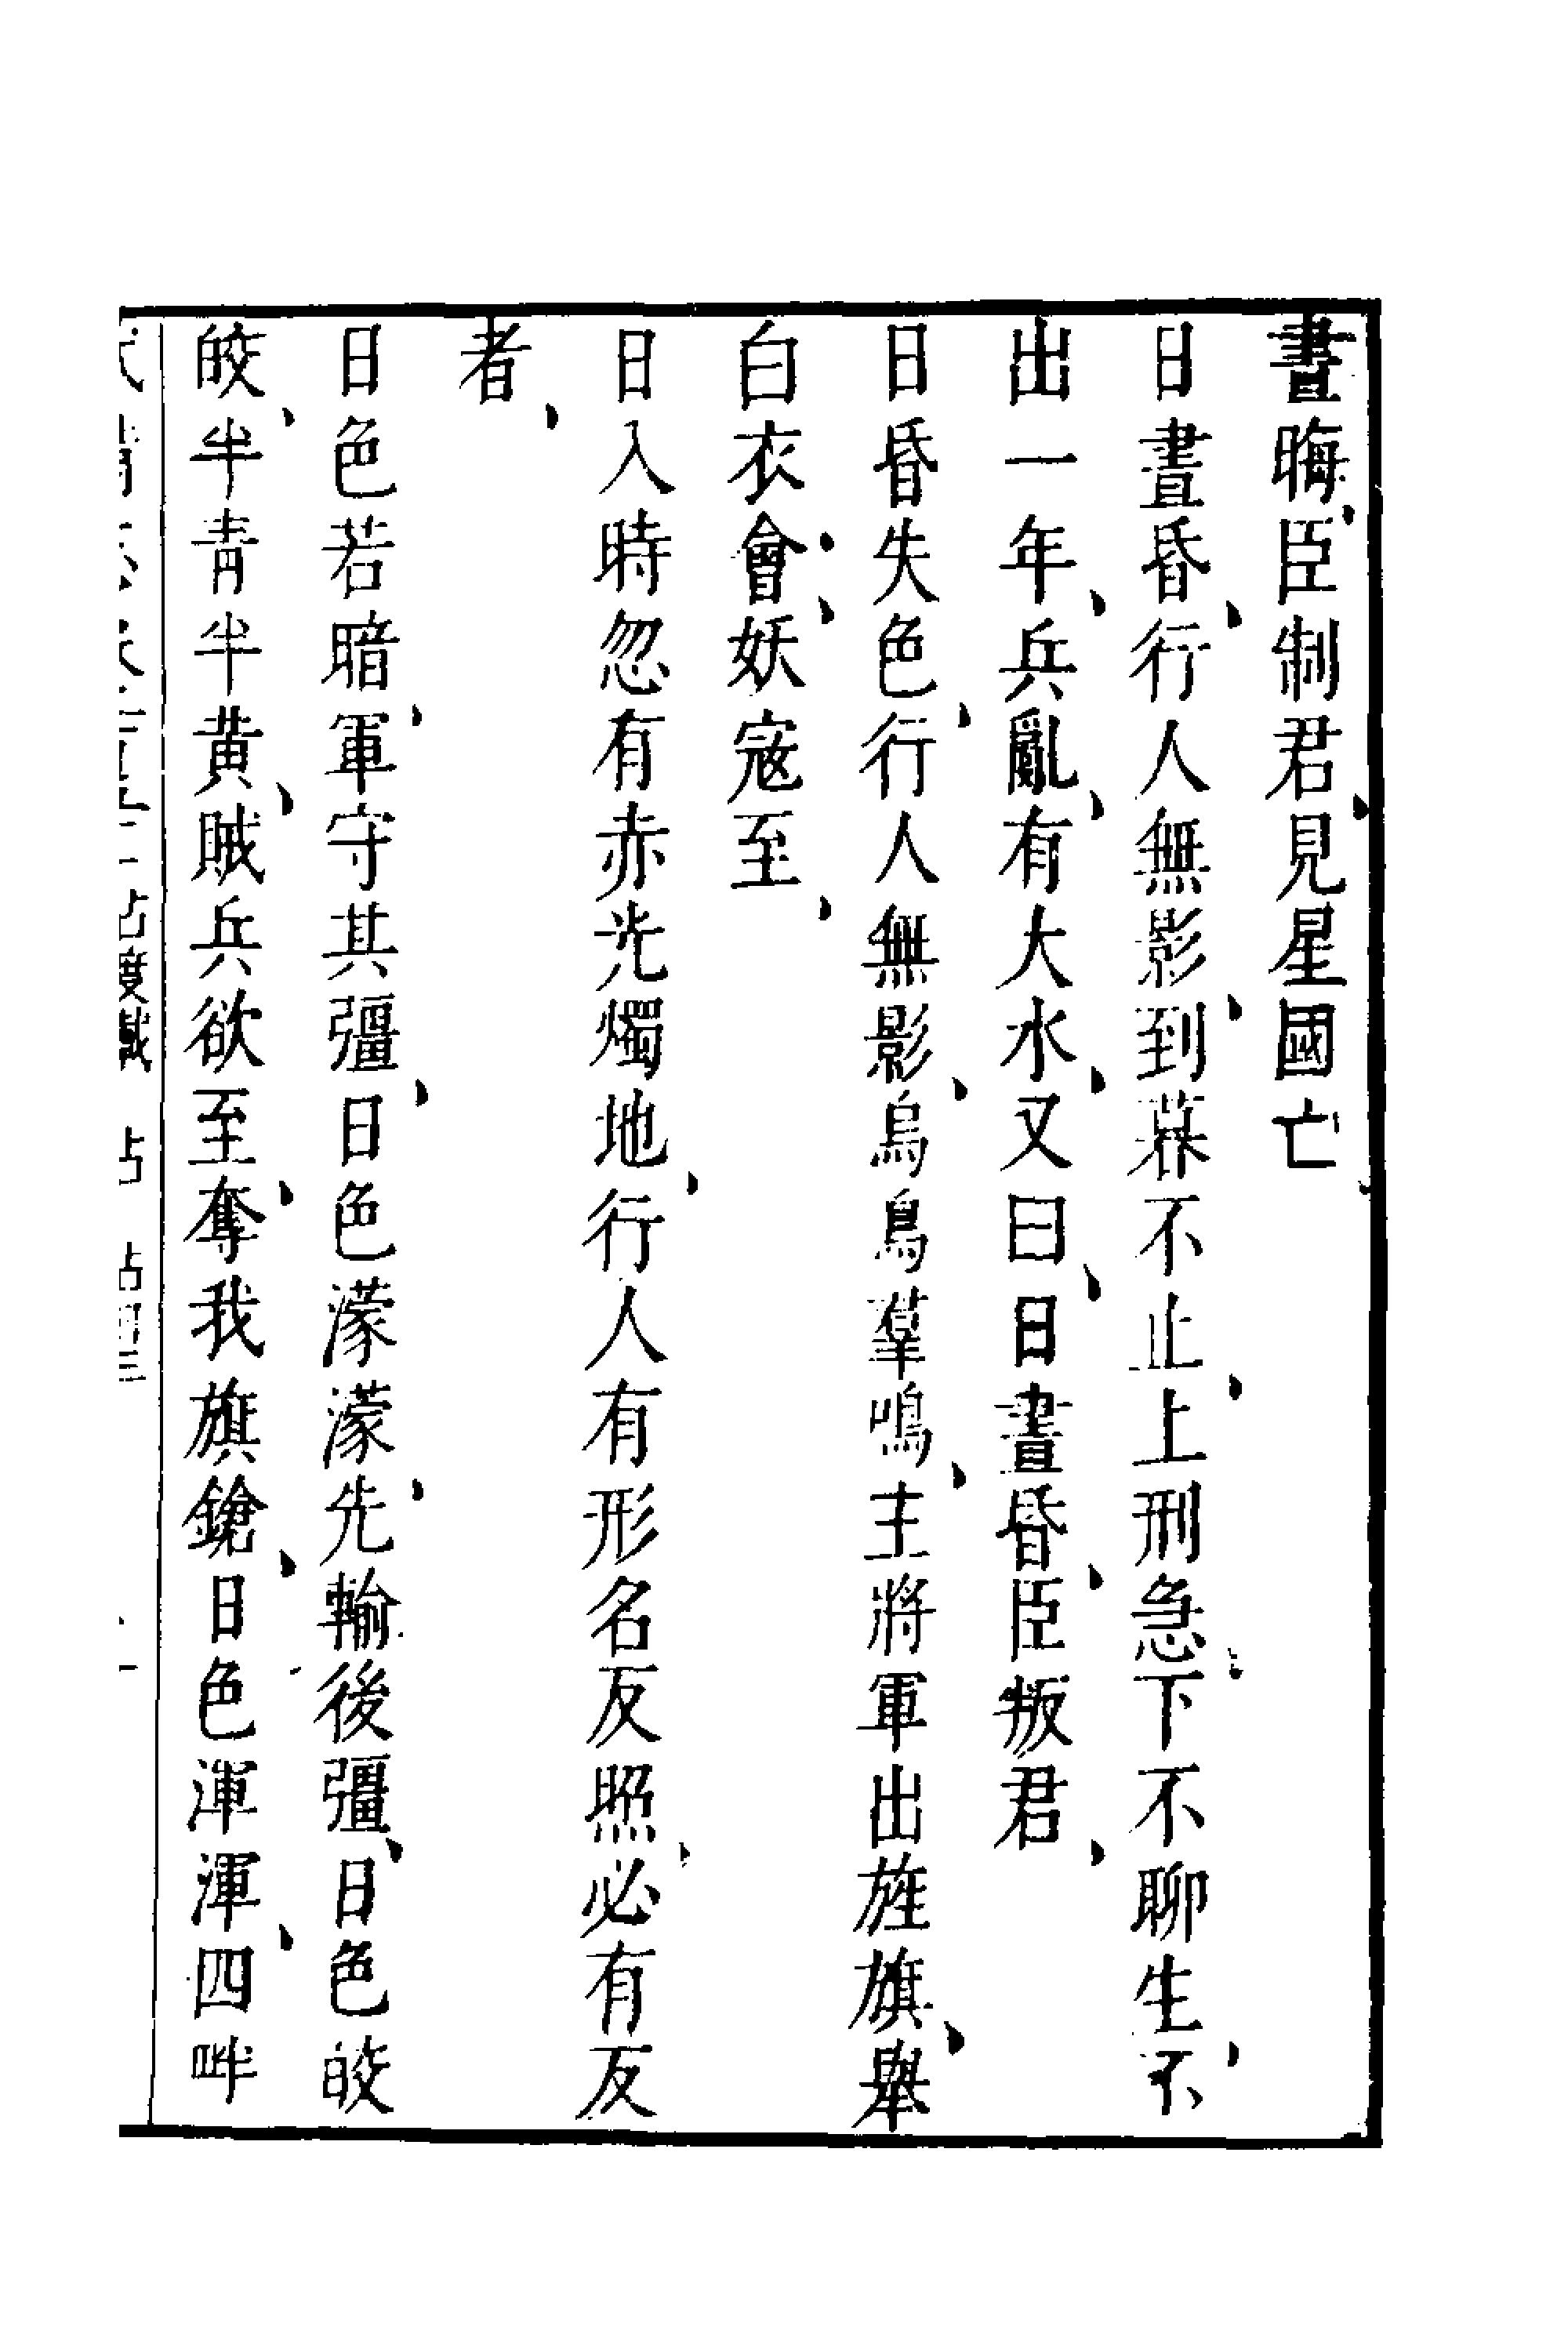 晝晦臣制君見星國亡
日晝昏行人無影到暮不止上刑急下不聊生不
出一年兵亂有大水又曰日晝昏臣叛君
日昏失色行人無影烏鳥羣鳴主將軍出旌旗舉
白衣會妖寇至
日入時忽有赤光燭地行人有形名反照必有反
者
日色若暗軍守其彊日色濛濛先輸後彊日色皎
皎半青半黃賊兵欲至奪我旗鎗日色渾渾四畔